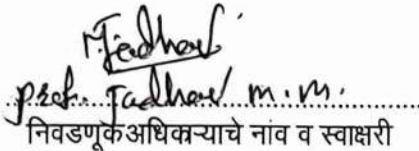 MJadhav
prof. Jadhav m.m.
निवडणूक अधिकाऱ्याचे नांव व स्वाक्षरी